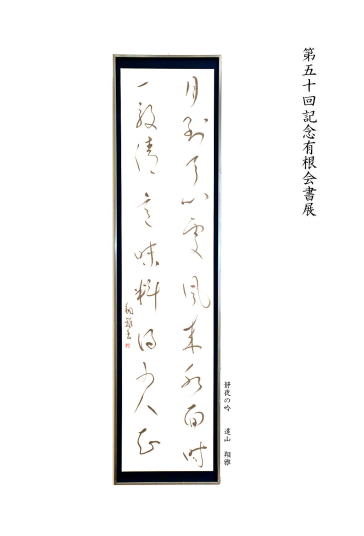 第五十回記念有根会書展
月到天心處風来水面時
一般清意味料得少人知
翔雅書
静夜の吟 遠山 翔雅